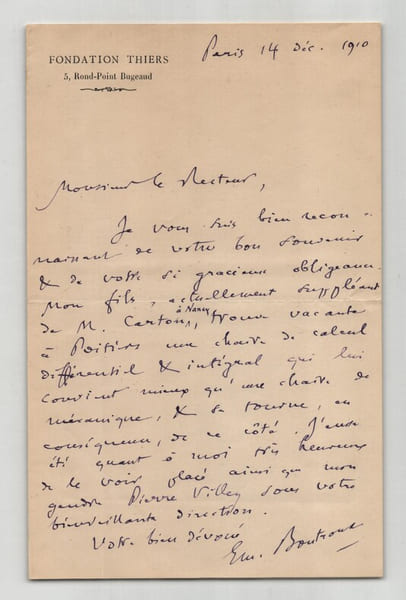 FONDATION THIERS
5, Rond-Point Bugeaud
Paris 14 déc. 1910
Monsieur le Recteur,
Je vous suis bien recon-
naissant de votre bon souvenir
& de votre si gracieuse obligeance.
Mon fils, actuellement suppléant
de M. Cartan, à Nancy, trouve vacante
à Poitiers une chaire de calcul
différentiel & intégral qui lui
convient mieux qu'une chaire de
mécanique, & se tourne, en
conséquence, de ce côté. J'eusse
été quant à moi très heureux
de le voir placé ainsi que mon
gendre Pierre Villey sous votre
bienveillante direction.
Votre bien dévoué
Em. Boutroux